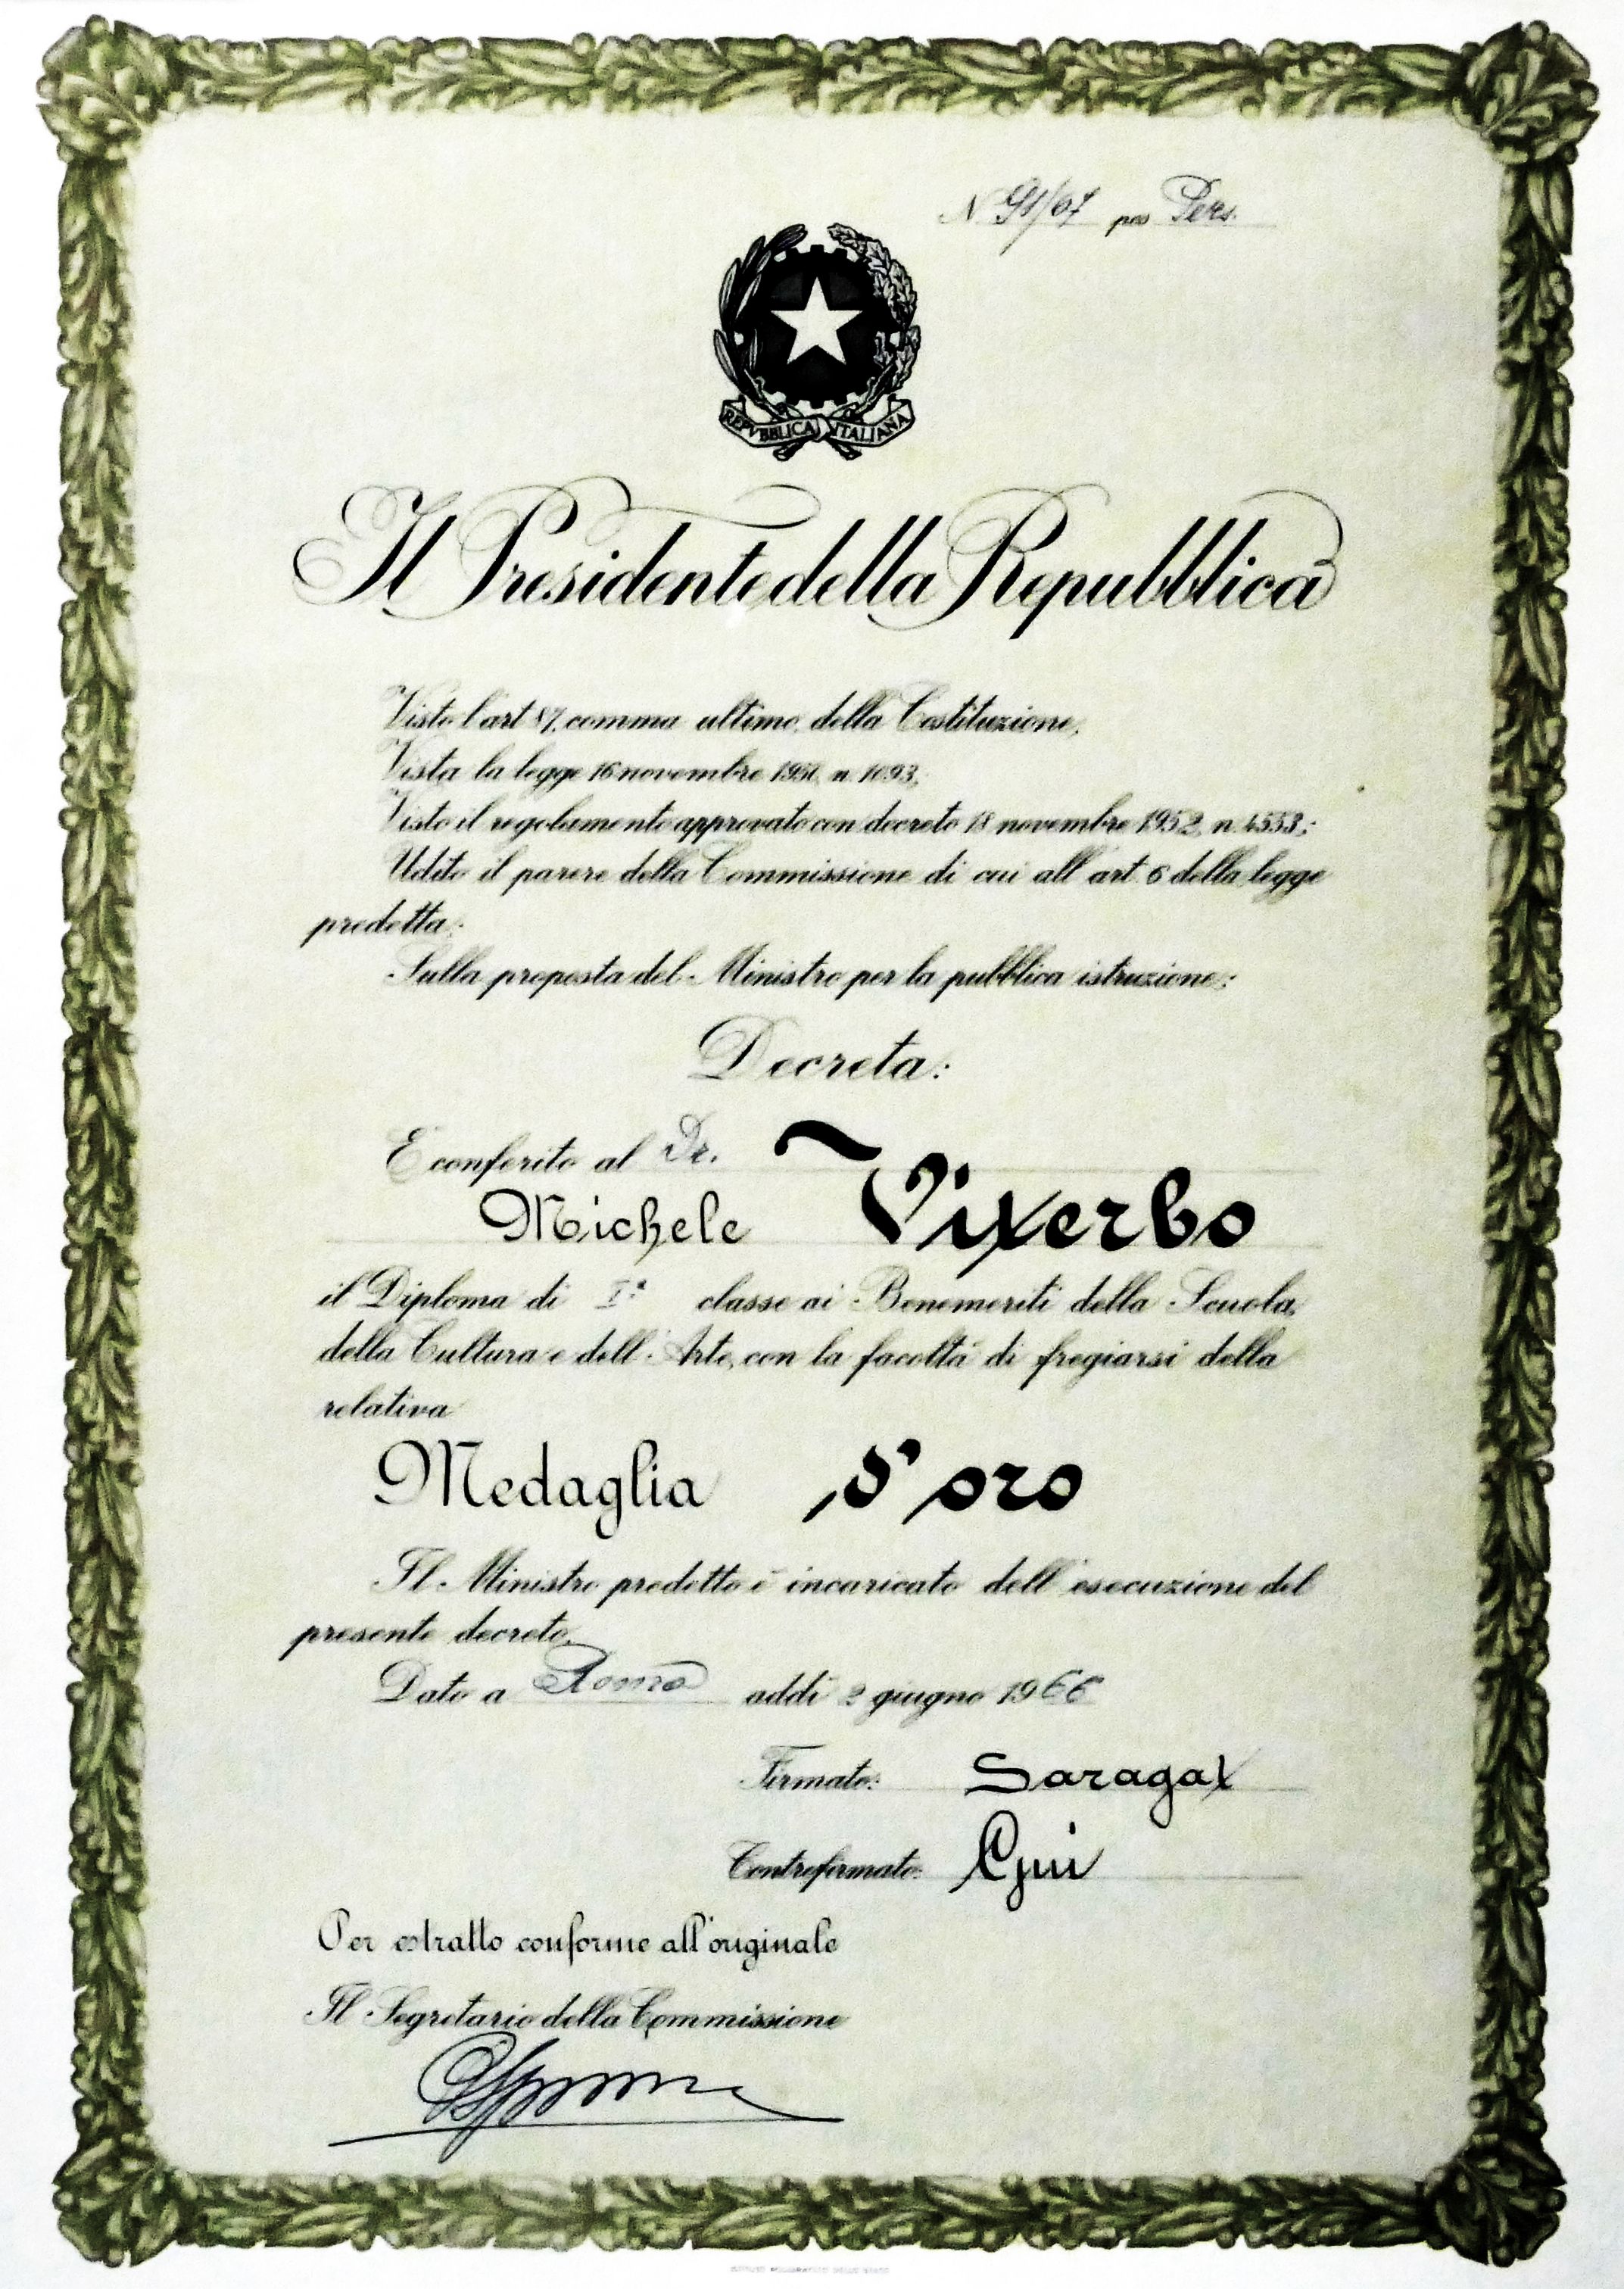 N 91/67 pos Pers.
REPVBBLICA ITALIANA
Il Presidente della Repubblica
Visto l'art 87, comma ultimo, della Costituzione,
Vista la legge 16 novembre 1950, n. 1093;
Visto il regolamento approvato con decreto 18 novembre 1952, n. 4553;
Udito il parere della Commissione di cui all'art. 6 della legge
predetta;
Sulla proposta del Ministro per la pubblica istruzione;
Decreta:
È conferito al Dr.
Michele Viterbo
il Diploma di Iª classe ai Benemeriti della Scuola,
della Cultura e dell'Arte, con la facoltà di fregiarsi della
relativa
Medaglia d'oro
Il Ministro predetto è incaricato dell'esecuzione del
presente decreto.
Dato a Roma addì 2 giugno 1966
Firmato: Saragat
Controfirmato: Gui
Per estratto conforme all'originale
Il Segretario della Commissione